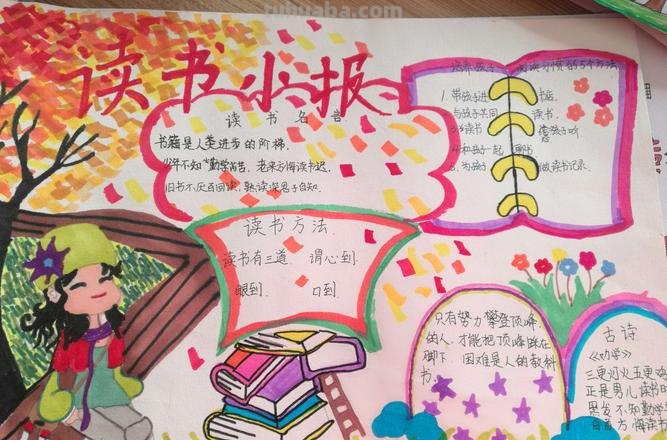 tuhuaba.com
读书小报
读书名言
书籍是人类进步的阶梯.
少年不知勤学苦,老来方悔读书迟.
旧书不厌百回读,熟读深思子自知.
培养孩子 阅读习惯的5个方法
1.带孩子进 书店.
2.与孩子共同 读书.
3. 读书 孩子听
4.和孩子一起
5.为孩子 做读书记录.
读书方法
读书有三道 谓心到.
眼到. 口到.
只有努力攀登顶峰
的人,才能把顶峰踩在
脚下. 困难是人的教科
书.
古诗
《劝学》
三更灯火五更鸡
正是男儿读书
黑发不知勤学
白首方悔读书